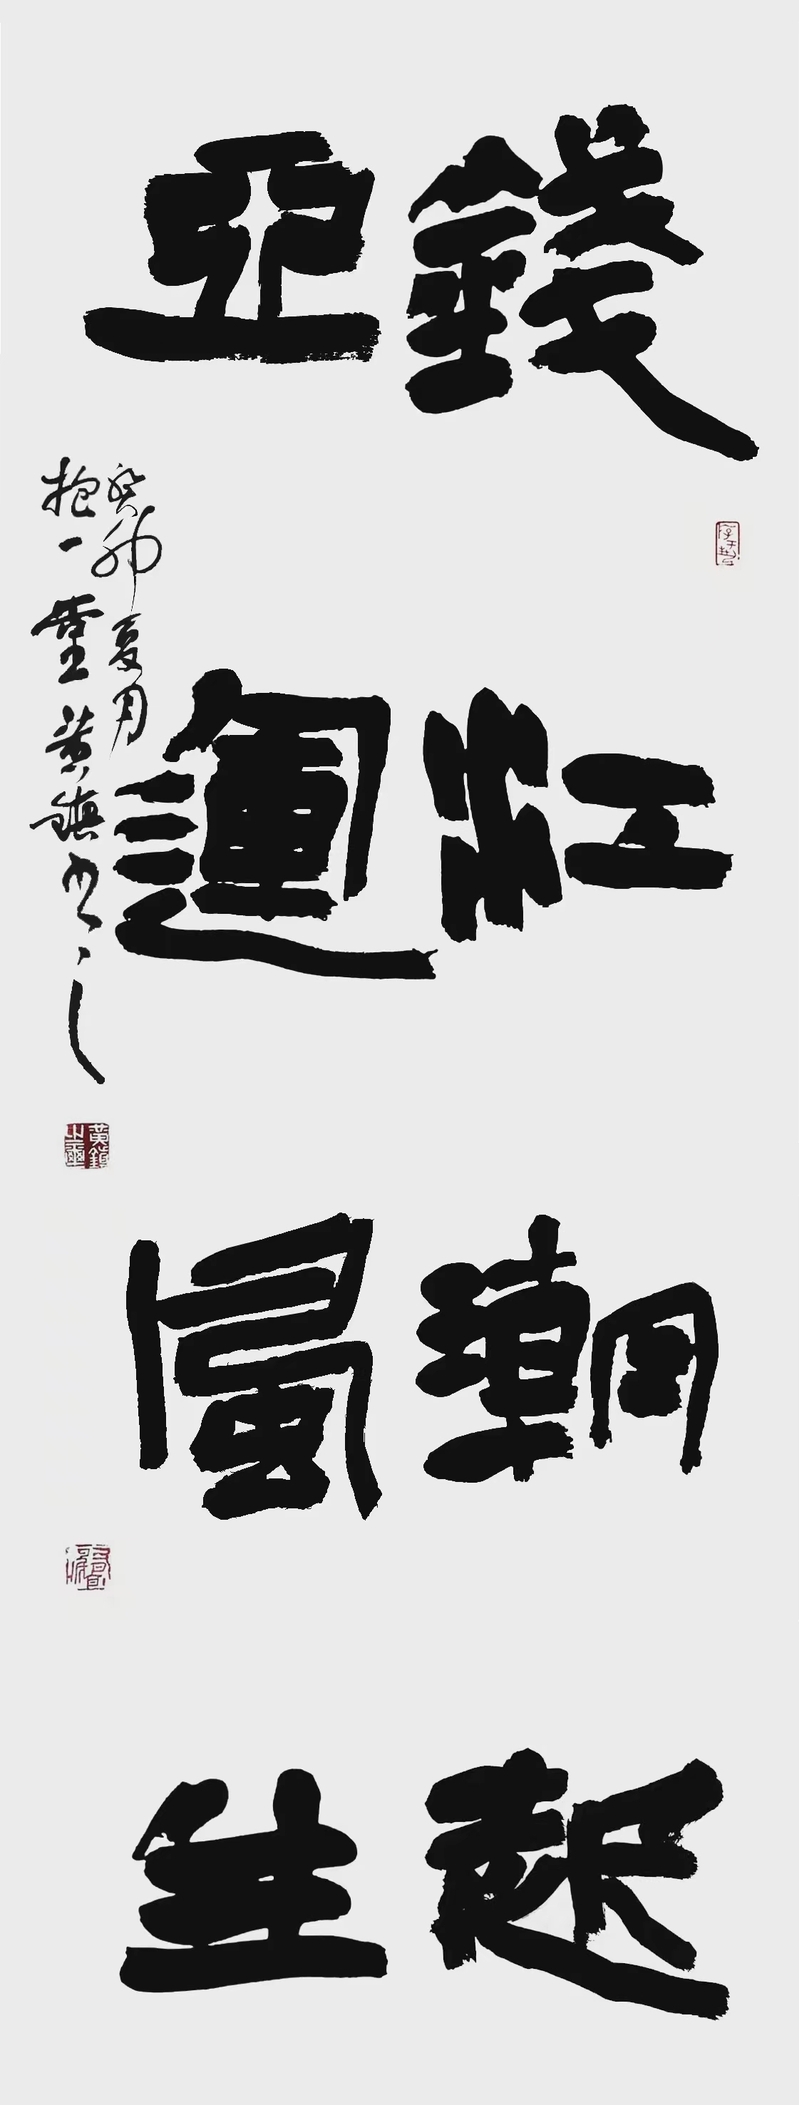 錢江潮起
亞運風生
癸卯夏月
抱一堂黃鎮書之
黃鎮